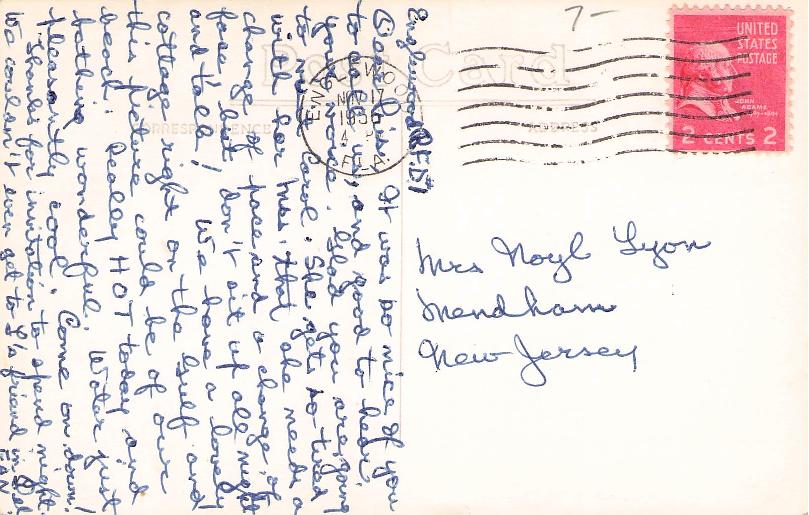 Post Card
CORRESPONDENCE
ADDRESS
7-
UNITED
STATES
POSTAGE
JOHN
ADAMS
2 CENTS 2
ENGLEWOOD
17
1956
FLA.
Englewood RFD1
Dear It was so nice of you
to call us, and good to hear
your voice. Glad you are going
to Carol. She gets so tired
with her that she needs a
change of pace and a change of
face, but don't sit up all night
and talk! We have a lovely
cottage right on the Gulf and
this picture could be of our
beach. Really HOT today and
bathing wonderful. Water just
pleasantly cool. Come on down!
Thanks for invitation to spend night.
We couldn't even get to L's friend in Del
E.A.N.
Mrs Noyl Lyon
Mendham
New Jersey